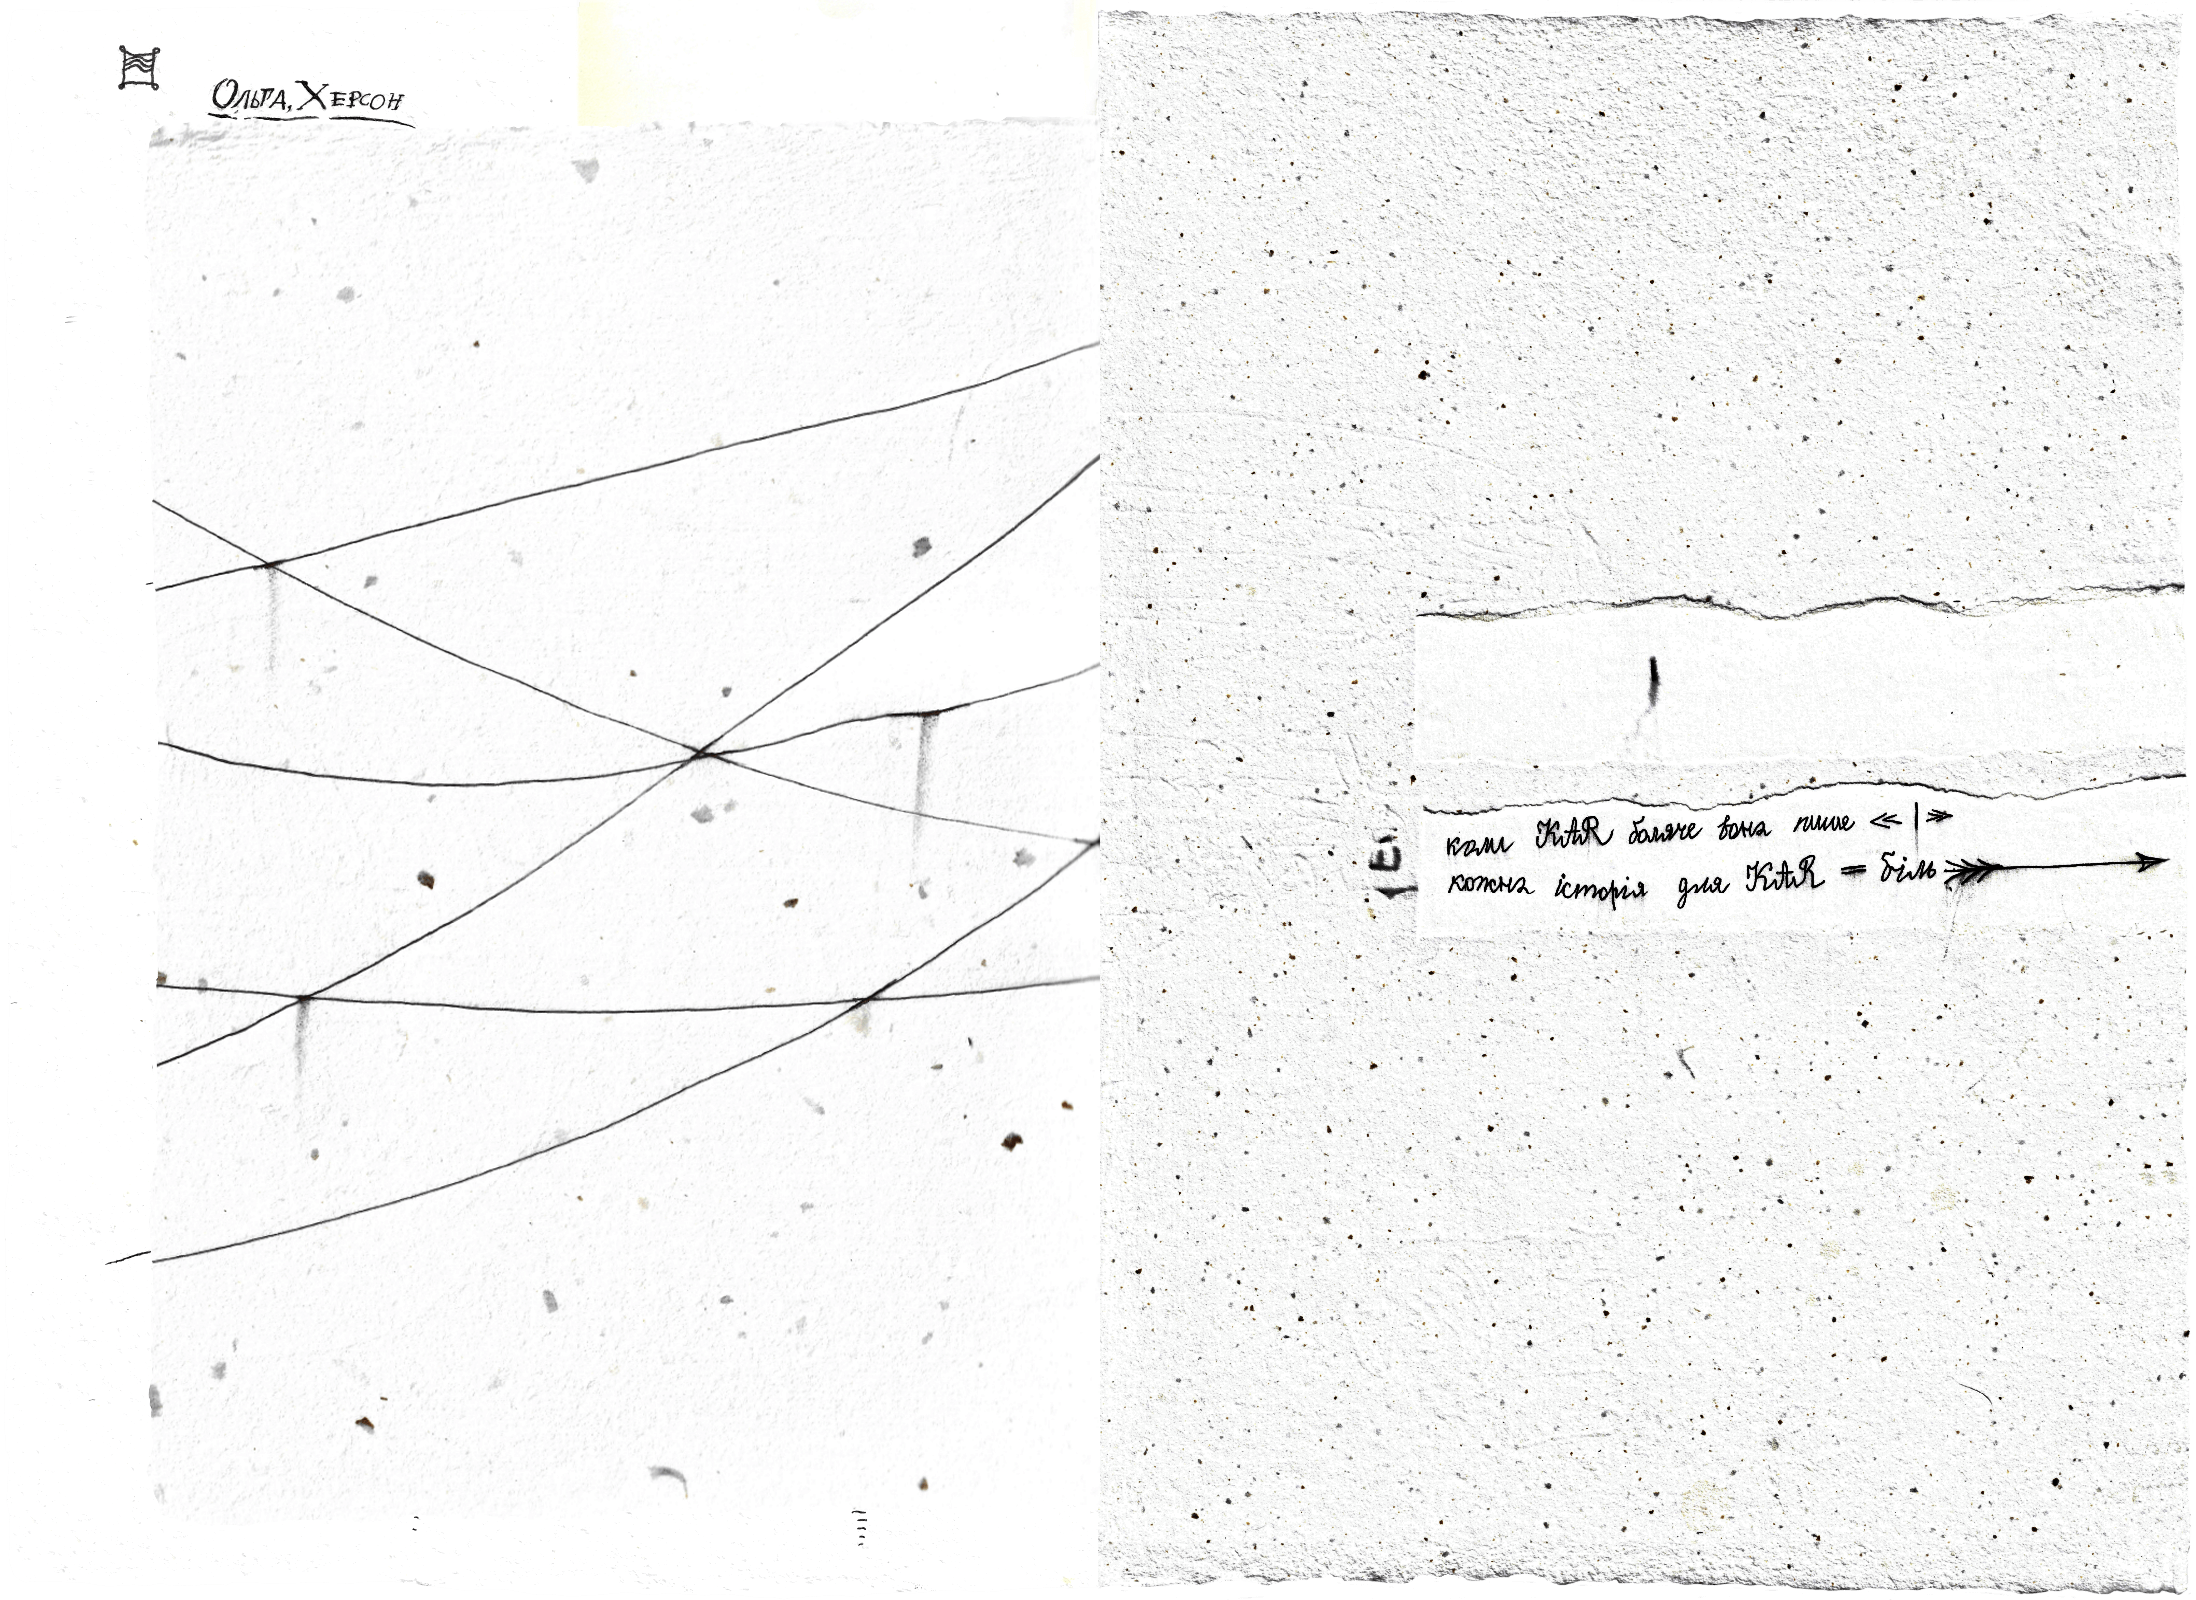 Ольга, Херсон
коли KAR боляче вона пише
кожна історія для KAR = біль